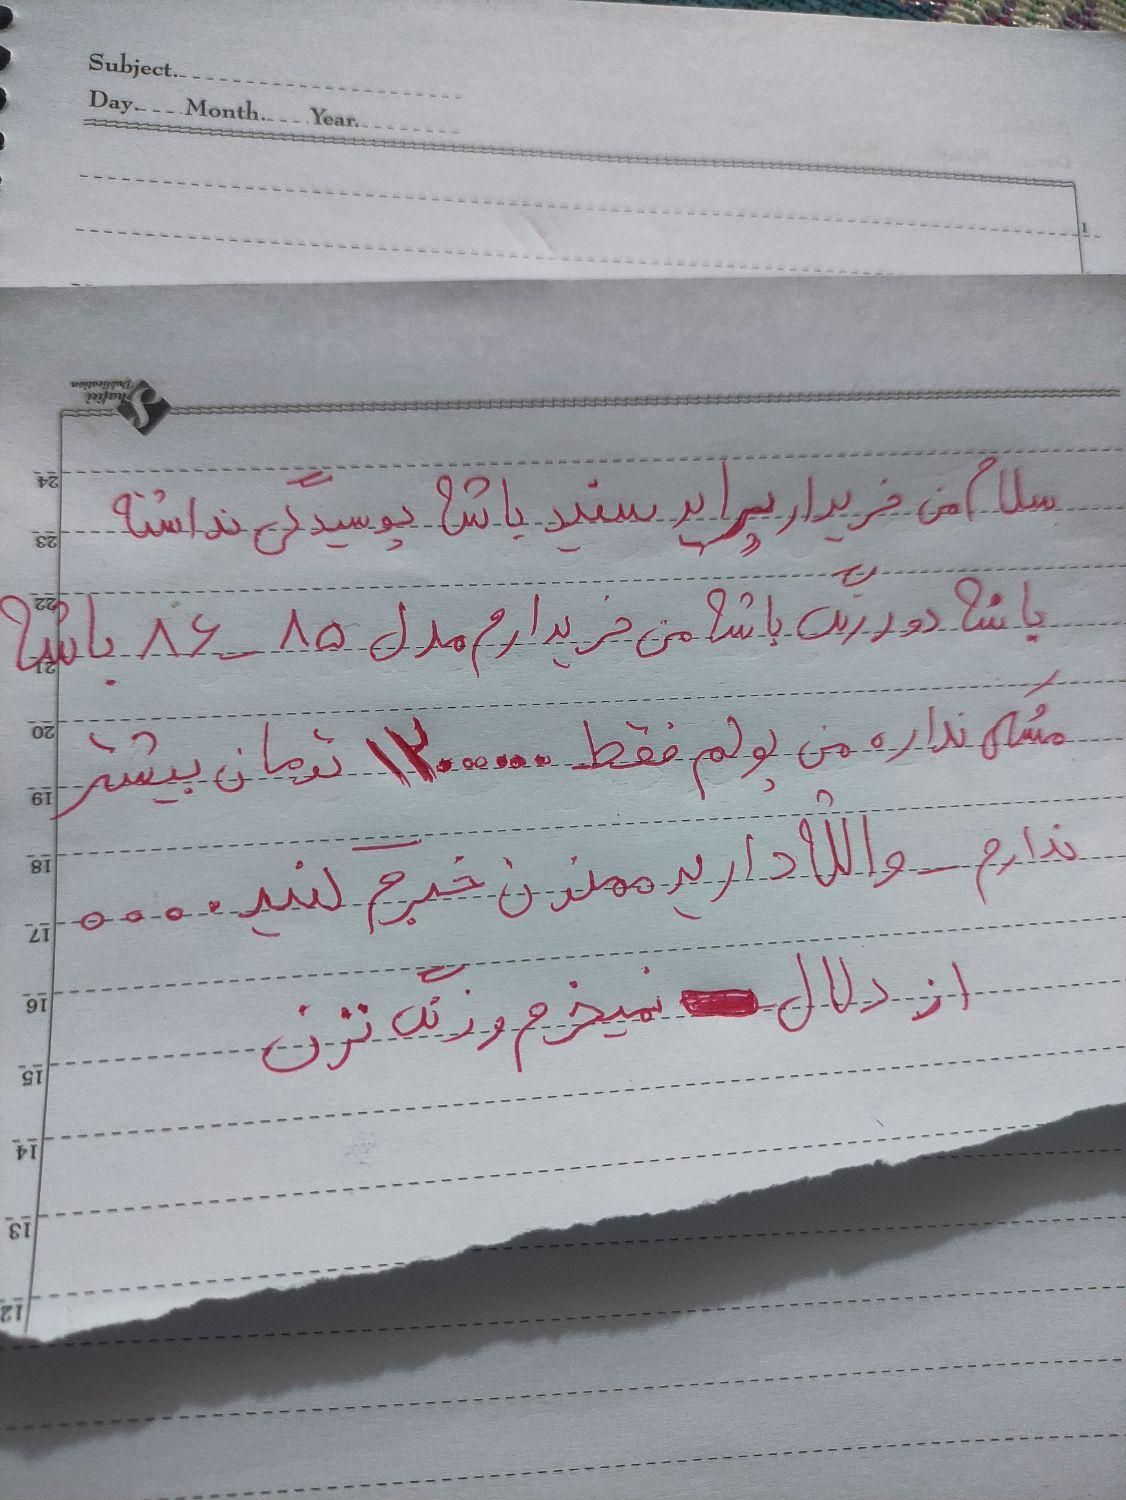 Subject.
Day. Month. Year.
1
Shafiei
Publication
24
سلام من خریدار پراید سفید باشه پوسیدگی نداشته
23
22
باشه دور رنگ باشه من خریدارم مدل ۸۵ _ ۸۶ باشه
21
20
مشکل نداره من پولم فقط ۱۲۰۰۰۰۰۰ تومان بیشتر
19
18
ندارم _ واللا دارید ممنون خبرم کنید
17
16
از دلال نمیخرم و زنگ نزن
15
14
13
12